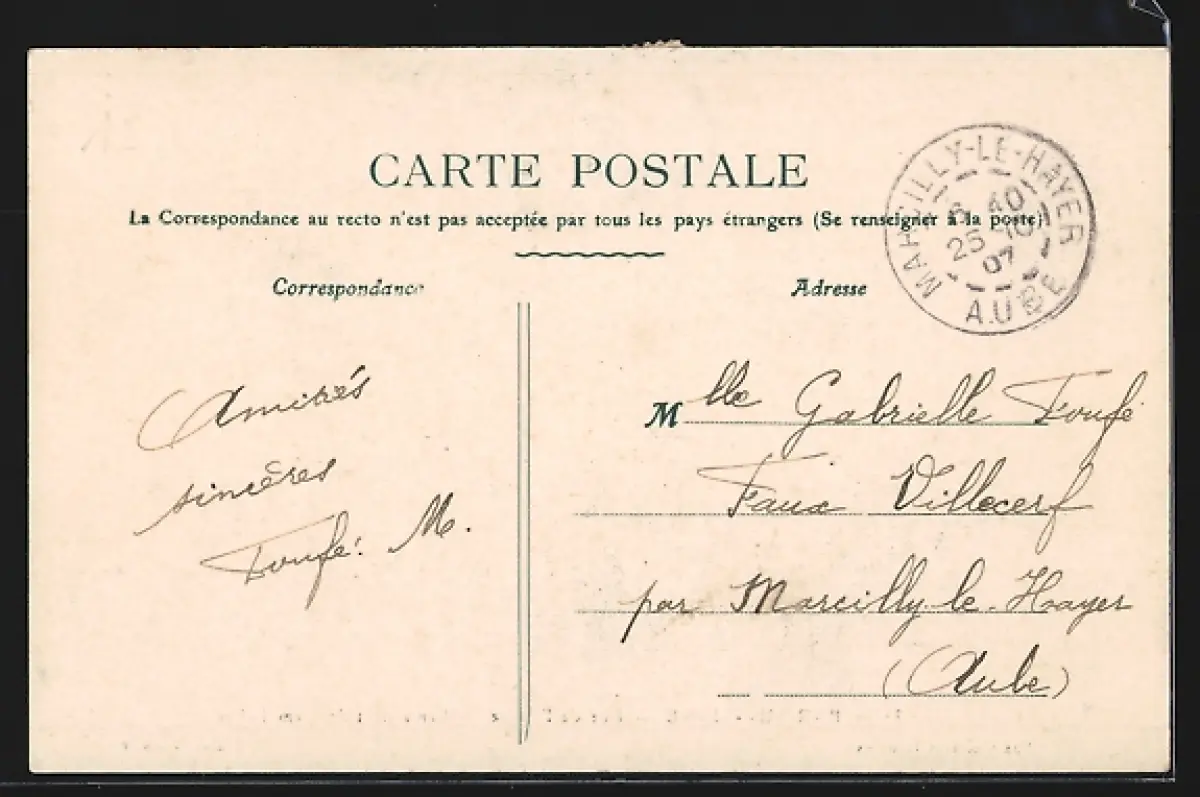 CARTE POSTALE
La Correspondance au recto n'est pas acceptée par tous les pays étrangers (Se renseigner à la poste)
Correspondance
Adresse
MARCILLY-LE-HAYER
40
25 -10
07
AUBE
Amitiés
sincères
Foufé. M.
Mlle Gabrielle Foufé
Faux Villecerf
par Marcilly-le-Hayer
(Aube)